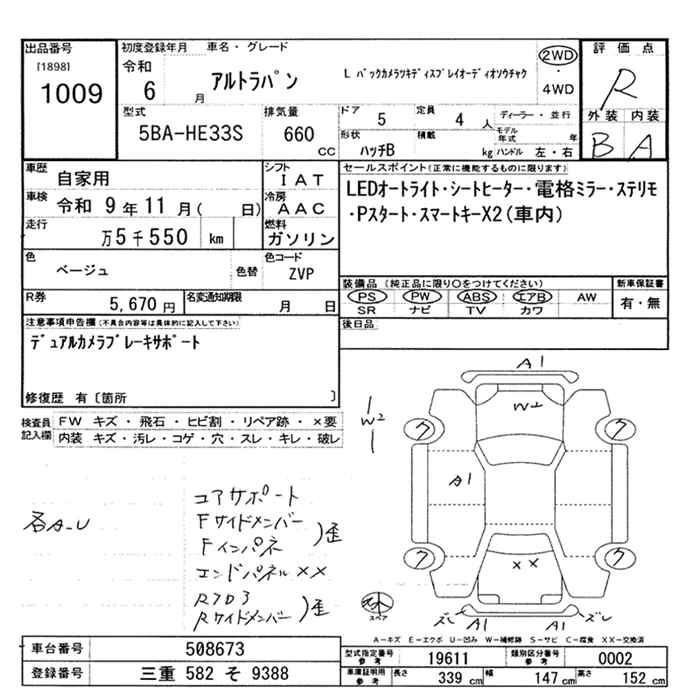 出品番号
[1898]
1009
初度登録年月 車名・グレード
令和
6 月
アルトラパン
L バックカメラツキディスプレイオーディオソウチャク
2WD
・
4WD
評価点
R
外装 内装
B A
型式
5BA-HE33S
排気量
660 CC
ドア 5
定員 4 人
ディーラー・並行
形状 ハッチB
積載 kg
モデル年式 年
ハンドル 左・右
車歴
自家用
シフト
IAT
車検
令和 9年11月( 日)
冷房
AAC
走行
万5千550 km
燃料
ガソリン
色
ベージュ
色替
色コード
ZVP
R券
5,670 円
名変通知期限
月 日
セールスポイント(正常に機能するものに限ります)
LEDオートライト・シートヒーター・電格ミラー・ステリモ
・Pスタート・スマートキーX2(車内)
装備品 (純正品に限り○をつけてください)
PS PW ABS エアB AW
SR ナビ TV カワ
新車保証書
有・無
後日品
注意事項申告欄(不具合内容等は具体的に記入して下さい)
デュアルカメラブレーキサポート
修復歴 有〔箇所 〕
検査員記入欄
FW キズ・飛石・ヒビ割・リペア跡・×要
内装 キズ・汚レ・コゲ・穴・スレ・キレ・破レ
各A-U
コアサポート
Fサイドメンバー
Fインパネ
)歪
エンドパネル××
Rフロア
Rサイドメンバー
)歪
A1
W2
W2
A1
ク
ク
ク
ク
××
スペア
ズレ
A1
A1
ズレ
A-キズ E-エクボ U-凹み W-補修跡 S-サビ C-腐食 XX-交換済
車台番号 508673
登録番号 三重 582 そ 9388
型式指定番号 参考 19611
類別区分番号 参考 0002
車庫証明用 参考
長さ 339 cm 幅 147 cm 高さ 152 cm